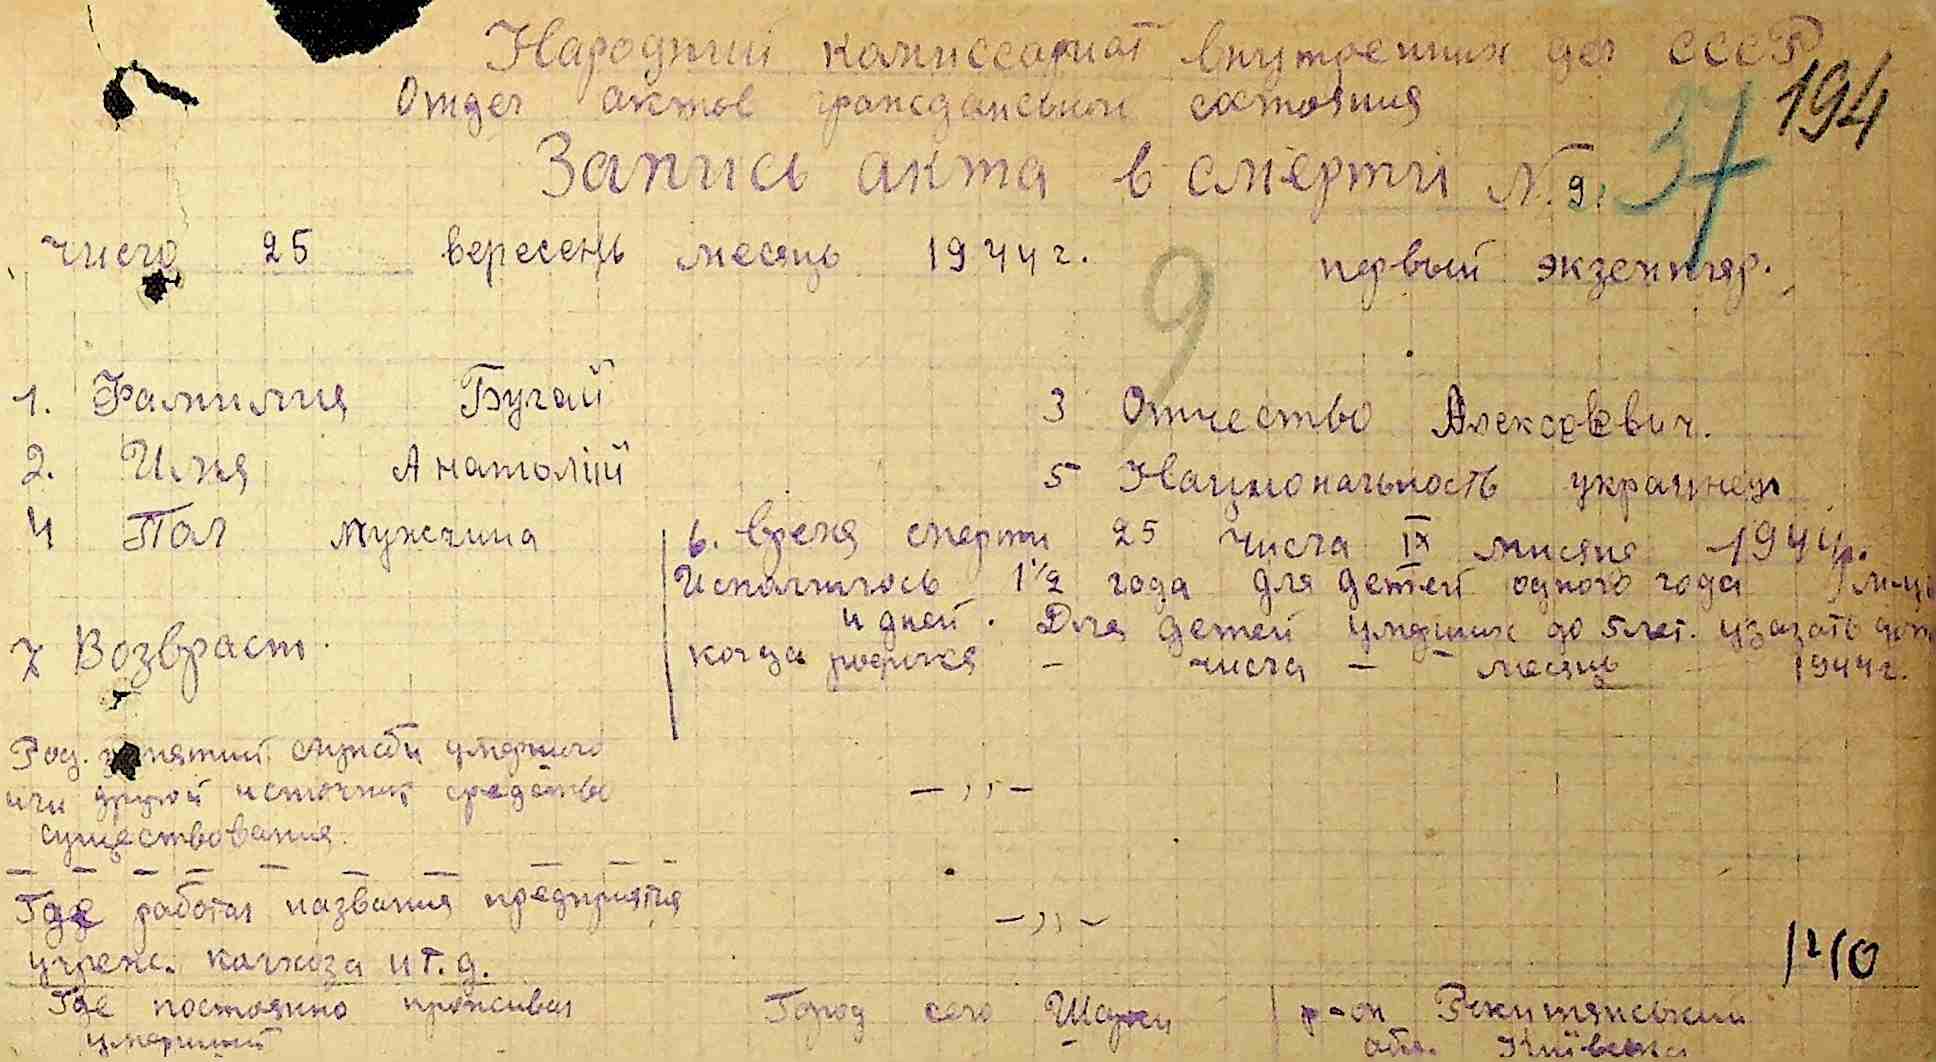 Народний комиссариат внутрених дел СССР
194
Отдел актов гражданской состояния
37
Запись акта в смерти N. 9.
число 25 вересень месяць 1944 г. первый экземпляр.
9
1. Фамилия Бугай 3 Отчество Алексеевич.
2. Имя Анатолій 5 Национальность украинец
4 Пол мужчина 6. Время смерти 25 числа IX мисяця 1944р.
Исполнилось 1 1/2 года для детей одного года м-ць
и дней. Для детей умерших до 5 лет. указать
7 Возвраст. когда родился - числа - - месяць 1944 г.
Род. занятий службы умершего
или другой источник средства — ,, —
существования.
Где работал названия предприятия — ,, —
учреж. колхоза и т. д. 1210
Где постоянно проживал Город село Шарки р-он Рокитянський
умерший обл. Київська